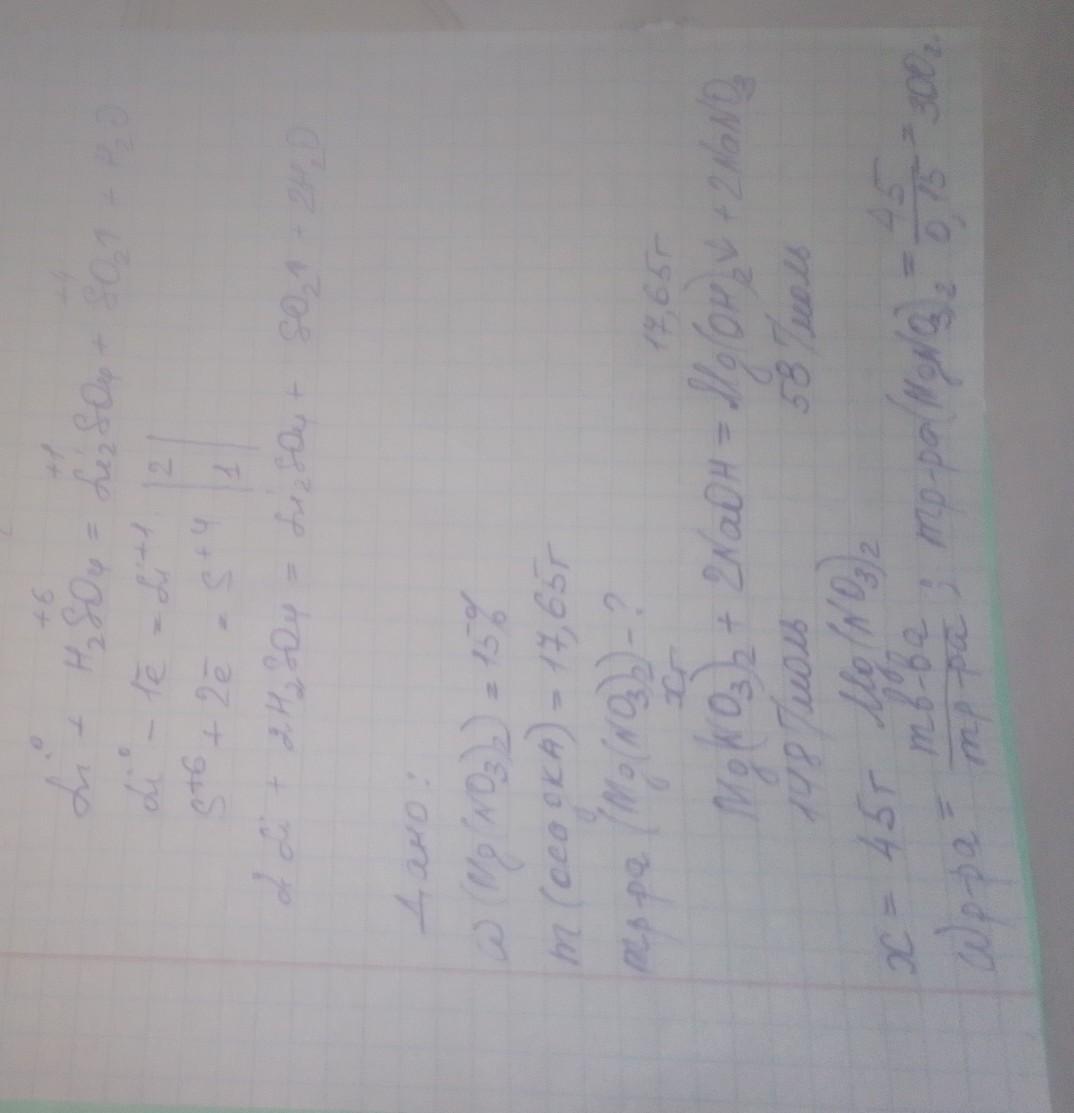 Li⁰ + H₂S⁺⁶O₄ = Li₂⁺¹SO₄ + S⁺⁴O₂↑ + H₂O
Li⁰ – 1ē = Li⁺¹ | 2 |
S⁺⁶ + 2ē = S⁺⁴ | 1 |
2Li + 2H₂SO₄ = Li₂SO₄ + SO₂↑ + 2H₂O
Дано:
ω(Mg(NO₃)₂) = 15%
m(осадка) = 17,65г
mр-ра (Mg(NO₃)₂) – ?
xг 17,65г
Mg(NO₃)₂ + 2NaOH = Mg(OH)₂↓ + 2NaNO₃
148 г/моль 58 г/моль
x = 45г Mg(NO₃)₂
ωр-ра = mв-ва / mр-ра ; mр-ра(MgNO₃)₂ = 45 / 0,15 = 300г.